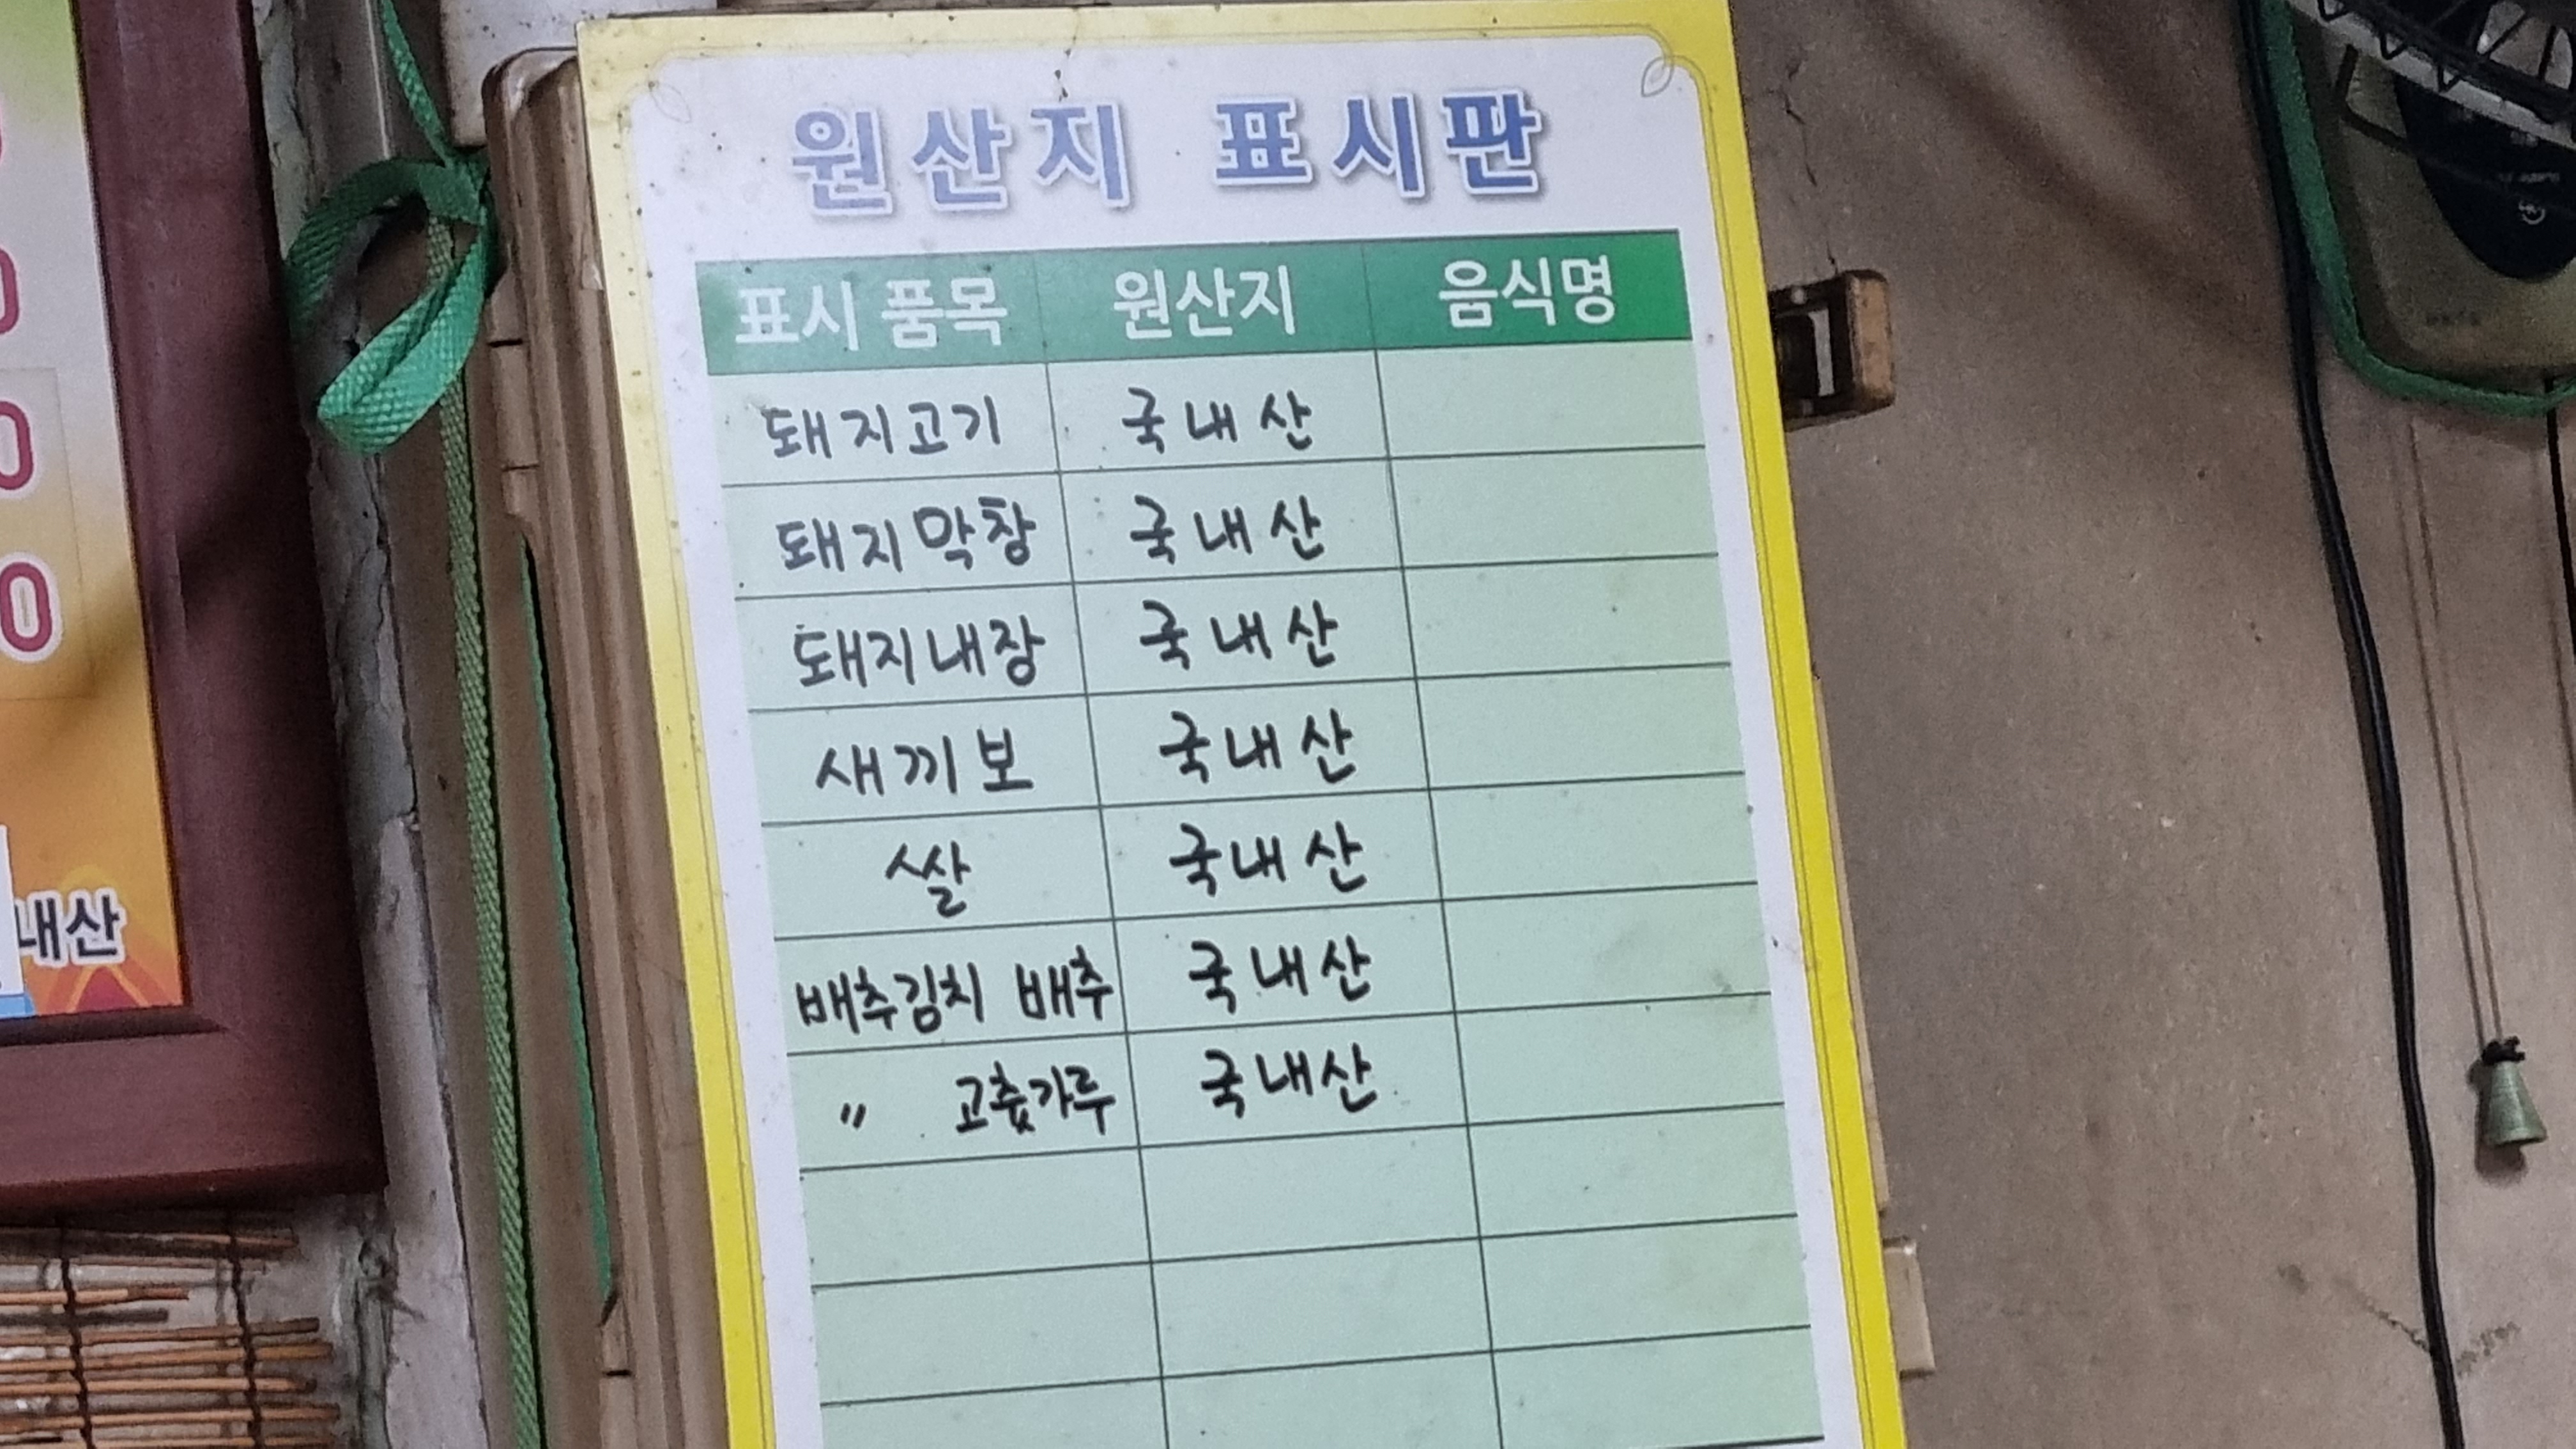 원산지 표시판
표시 품목 원산지 음식명
돼지고기 국내산
돼지막창 국내산
돼지내장 국내산
새끼보 국내산
쌀 국내산
배추김치 배추 국내산
〃 고춧가루 국내산
0
0
0
내산